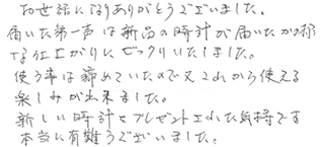 お世話になりありがとうございました。
届いた第一声は新品の時計が届いたかの様
な仕上がりにビックリいたしました。
使う事は諦めていたので又これから使える
楽しみが出来ました。
新しい時計をプレゼントされた気持です
本当に有難うございました。